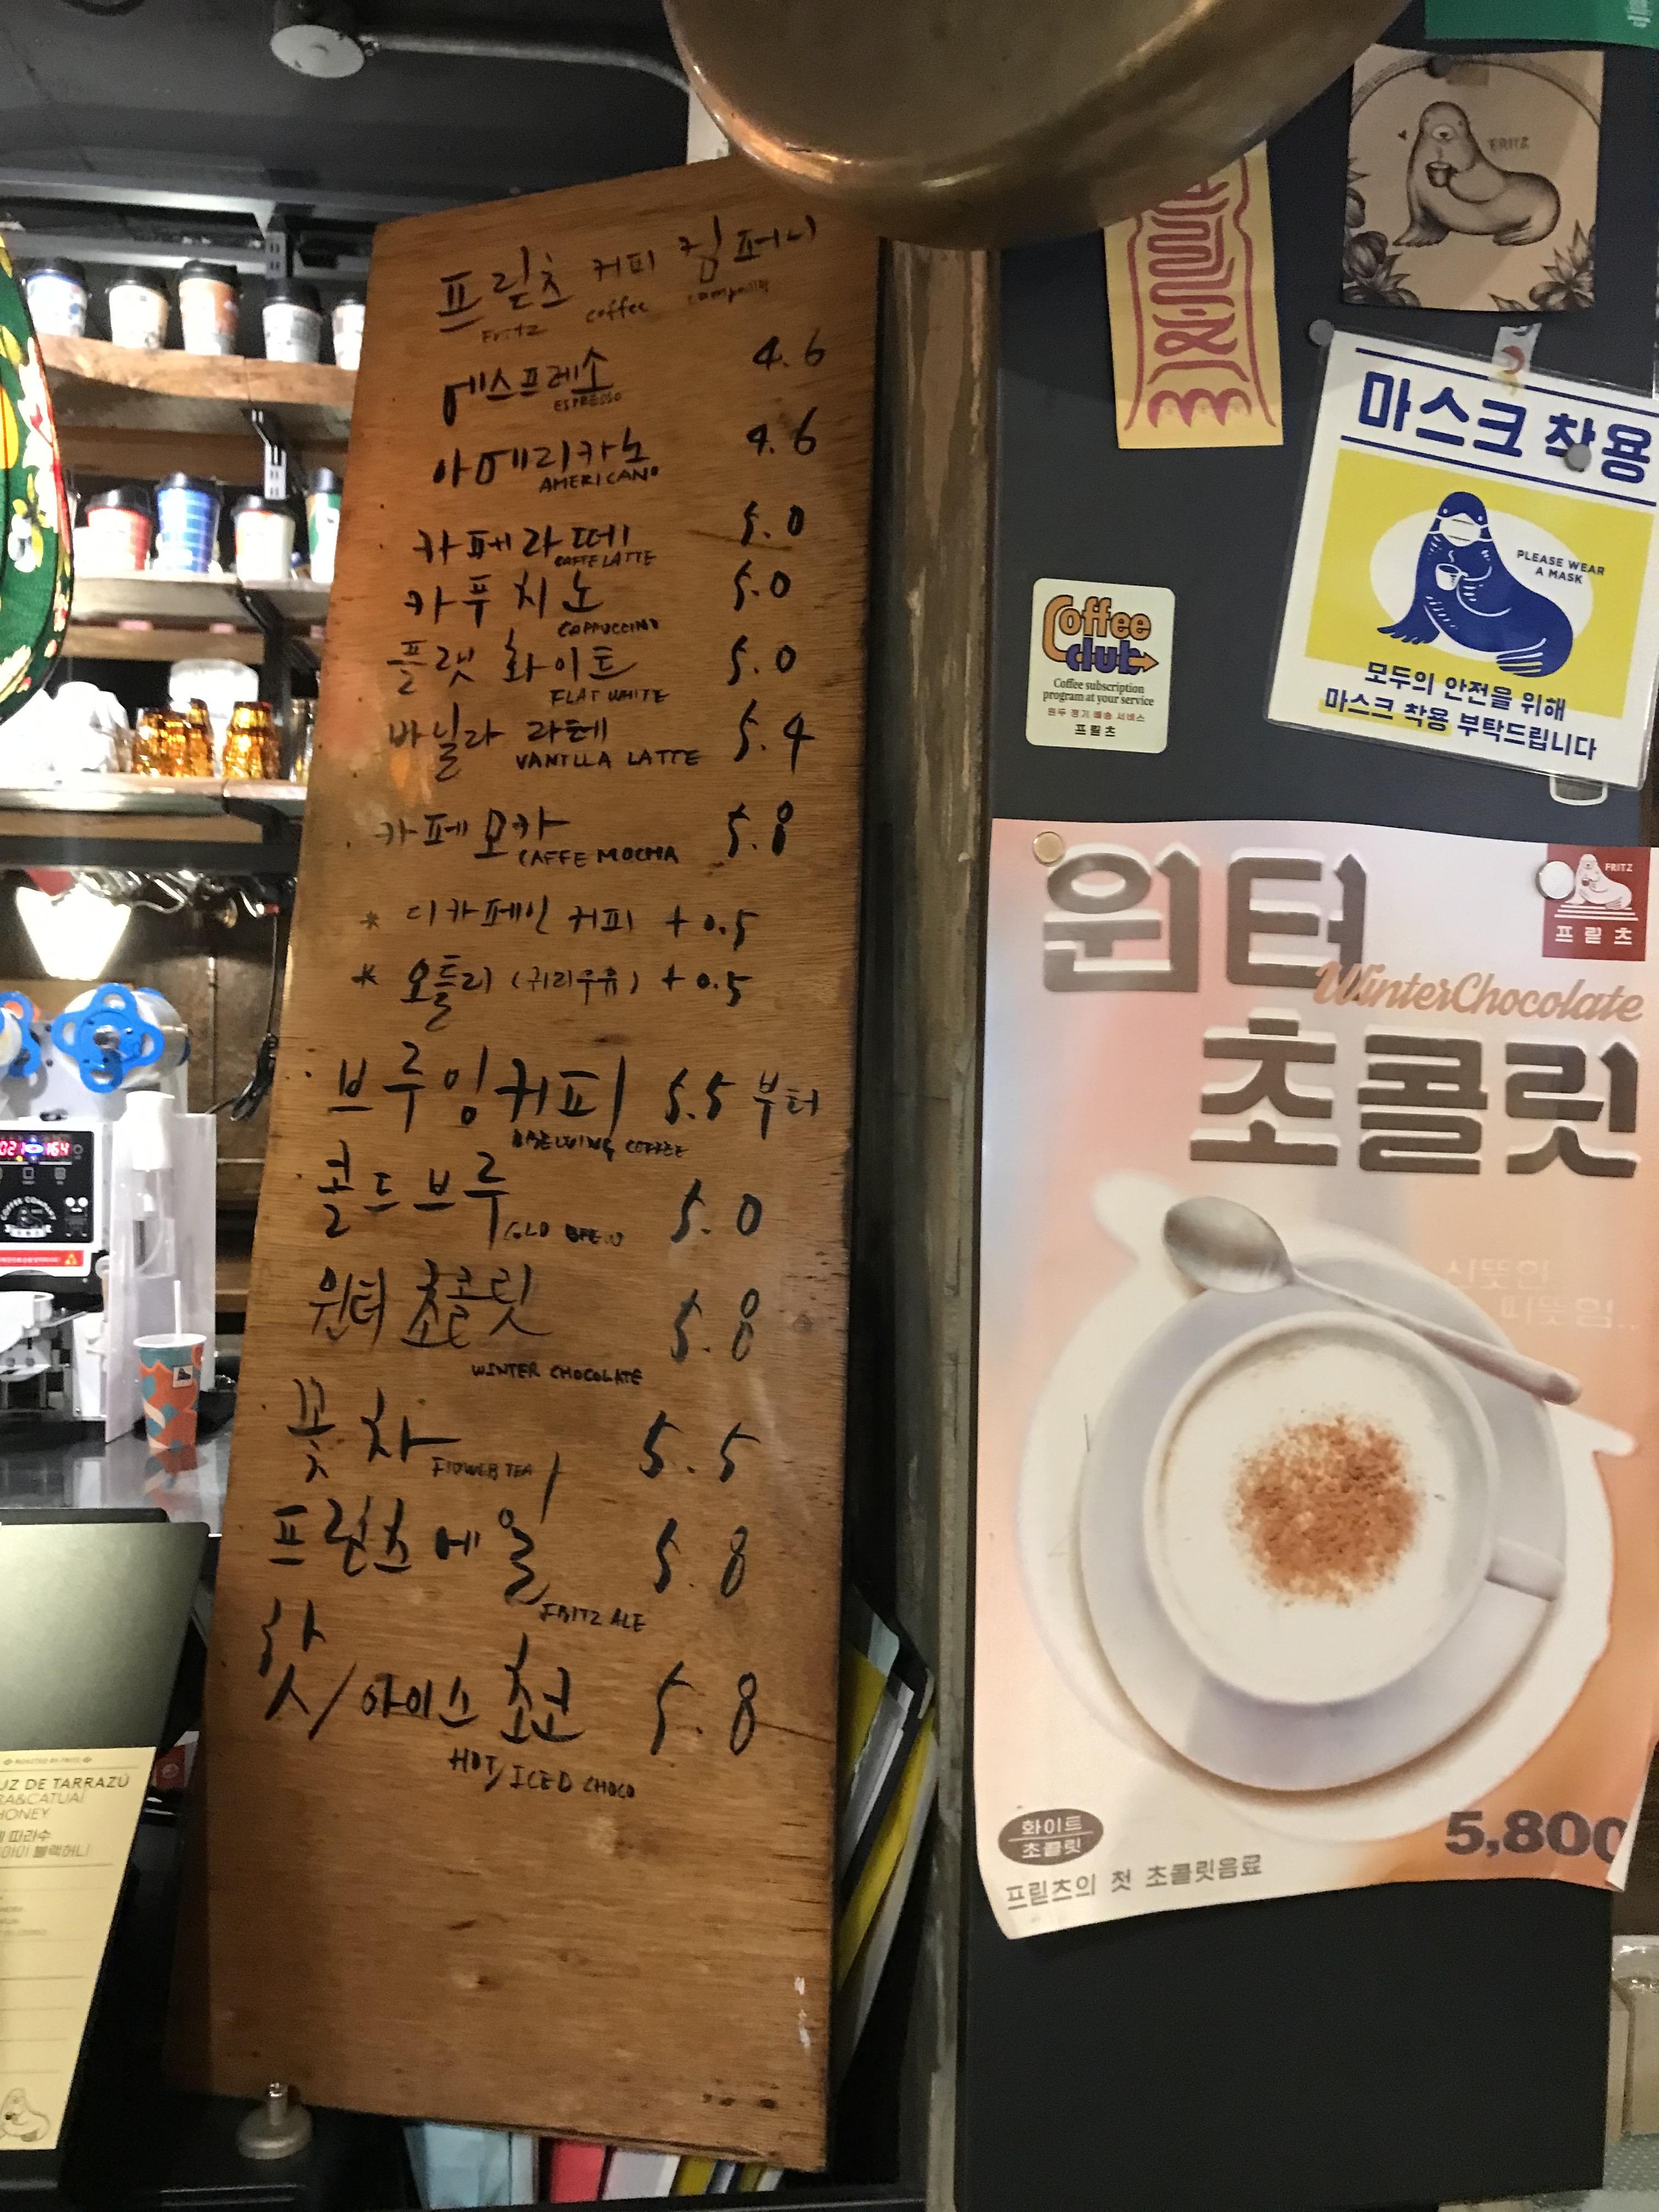 프릳츠 커피 컴퍼니
Fritz coffee company
에스프레소 4.6
ESPRESSO
아메리카노 4.6
AMERICANO
카페라떼 5.0
CAFFE LATTE
카푸치노 5.0
CAPPUCCINO
플랫 화이트 5.0
FLAT WHITE
바닐라 라떼 5.4
VANILLA LATTE
카페모카 5.8
CAFFE MOCHA
* 디카페인 커피 +0.5
* 오틀리 (귀리우유) +0.5
브루잉커피 5.5 부터
BREWING COFFEE
콜드브루 5.0
COLD BREW
윈터 초콜릿 5.8
WINTER CHOCOLATE
꽃차 5.5
FLOWER TEA
프릳츠에일 5.8
FRITZ ALE
핫/아이스 초코 5.8
HOT/ICED CHOCO
FRITZ
마스크 착용
PLEASE WEAR
A MASK
모두의 안전을 위해
마스크 착용 부탁드립니다
Coffee
club
Coffee subscription
program at your service
원두 정기 배송 서비스
프릳츠
윈터
WinterChocolate
초콜릿
FRITZ
프릳츠
산뜻한
따뜻함..
화이트
초콜릿
프릳츠의 첫 초콜릿음료
5,800
COFFEE COMPANY
ROASTED BY FRITZ
UZ DE TARRAZÚ
RA&CATUAÍ
HONEY
따라수
아이 블랙허니